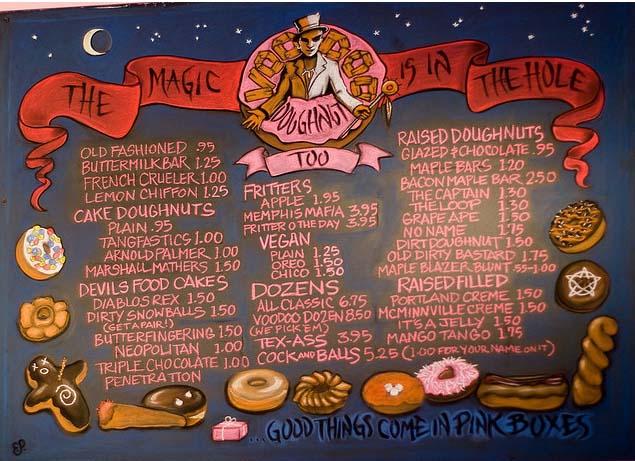 THE MAGIC IS IN THE HOLE
VOODOO
DOUGHNUT
TOO
OLD FASHIONED .95
BUTTERMILK BAR 1.25
FRENCH CRUELER 1.00
LEMON CHIFFON 1.25
CAKE DOUGHNUTS
PLAIN .95
TANGFASTICS 1.00
ARNOLD PALMER 1.00
MARSHALL MATHERS 1.50
DEVILS FOOD CAKES
DIABLOS REX 1.50
DIRTY SNOWBALLS 1.50
(GET A PAIR!)
BUTTERFINGERING 1.50
NEOPOLITAN 1.00
TRIPLE CHOCOLATE 1.00
PENETRATION
FRITTERS
APPLE 1.95
MEMPHIS MAFIA 3.95
FRITTER O THE DAY 3.95
VEGAN
PLAIN 1.25
OREO 1.50
CHICO 1.50
DOZENS
ALL CLASSIC 6.75
VOODOO DOZEN 8.50
(WE PICK'EM)
TEX-ASS 3.95
COCK AND BALLS 5.25 (1.00 FOR YOUR NAME ON IT)
RAISED DOUGHNUTS
GLAZED & CHOCOLATE .95
MAPLE BARS 1.20
BACON MAPLE BAR 2.50
THE CAPTAIN 1.30
THE LOOP 1.30
GRAPE APE 1.50
NO NAME 1.75
DIRT DOUGHNUT 1.50
OLD DIRTY BASTARD 1.75
MAPLE BLAZER BLUNT .55-1.00
RAISED FILLED
PORTLAND CREME 1.50
MCMINNVILLE CREME 1.50
IT'S A JELLY 1.50
MANGO TANGO 1.75
...GOOD THINGS COME IN PINK BOXES